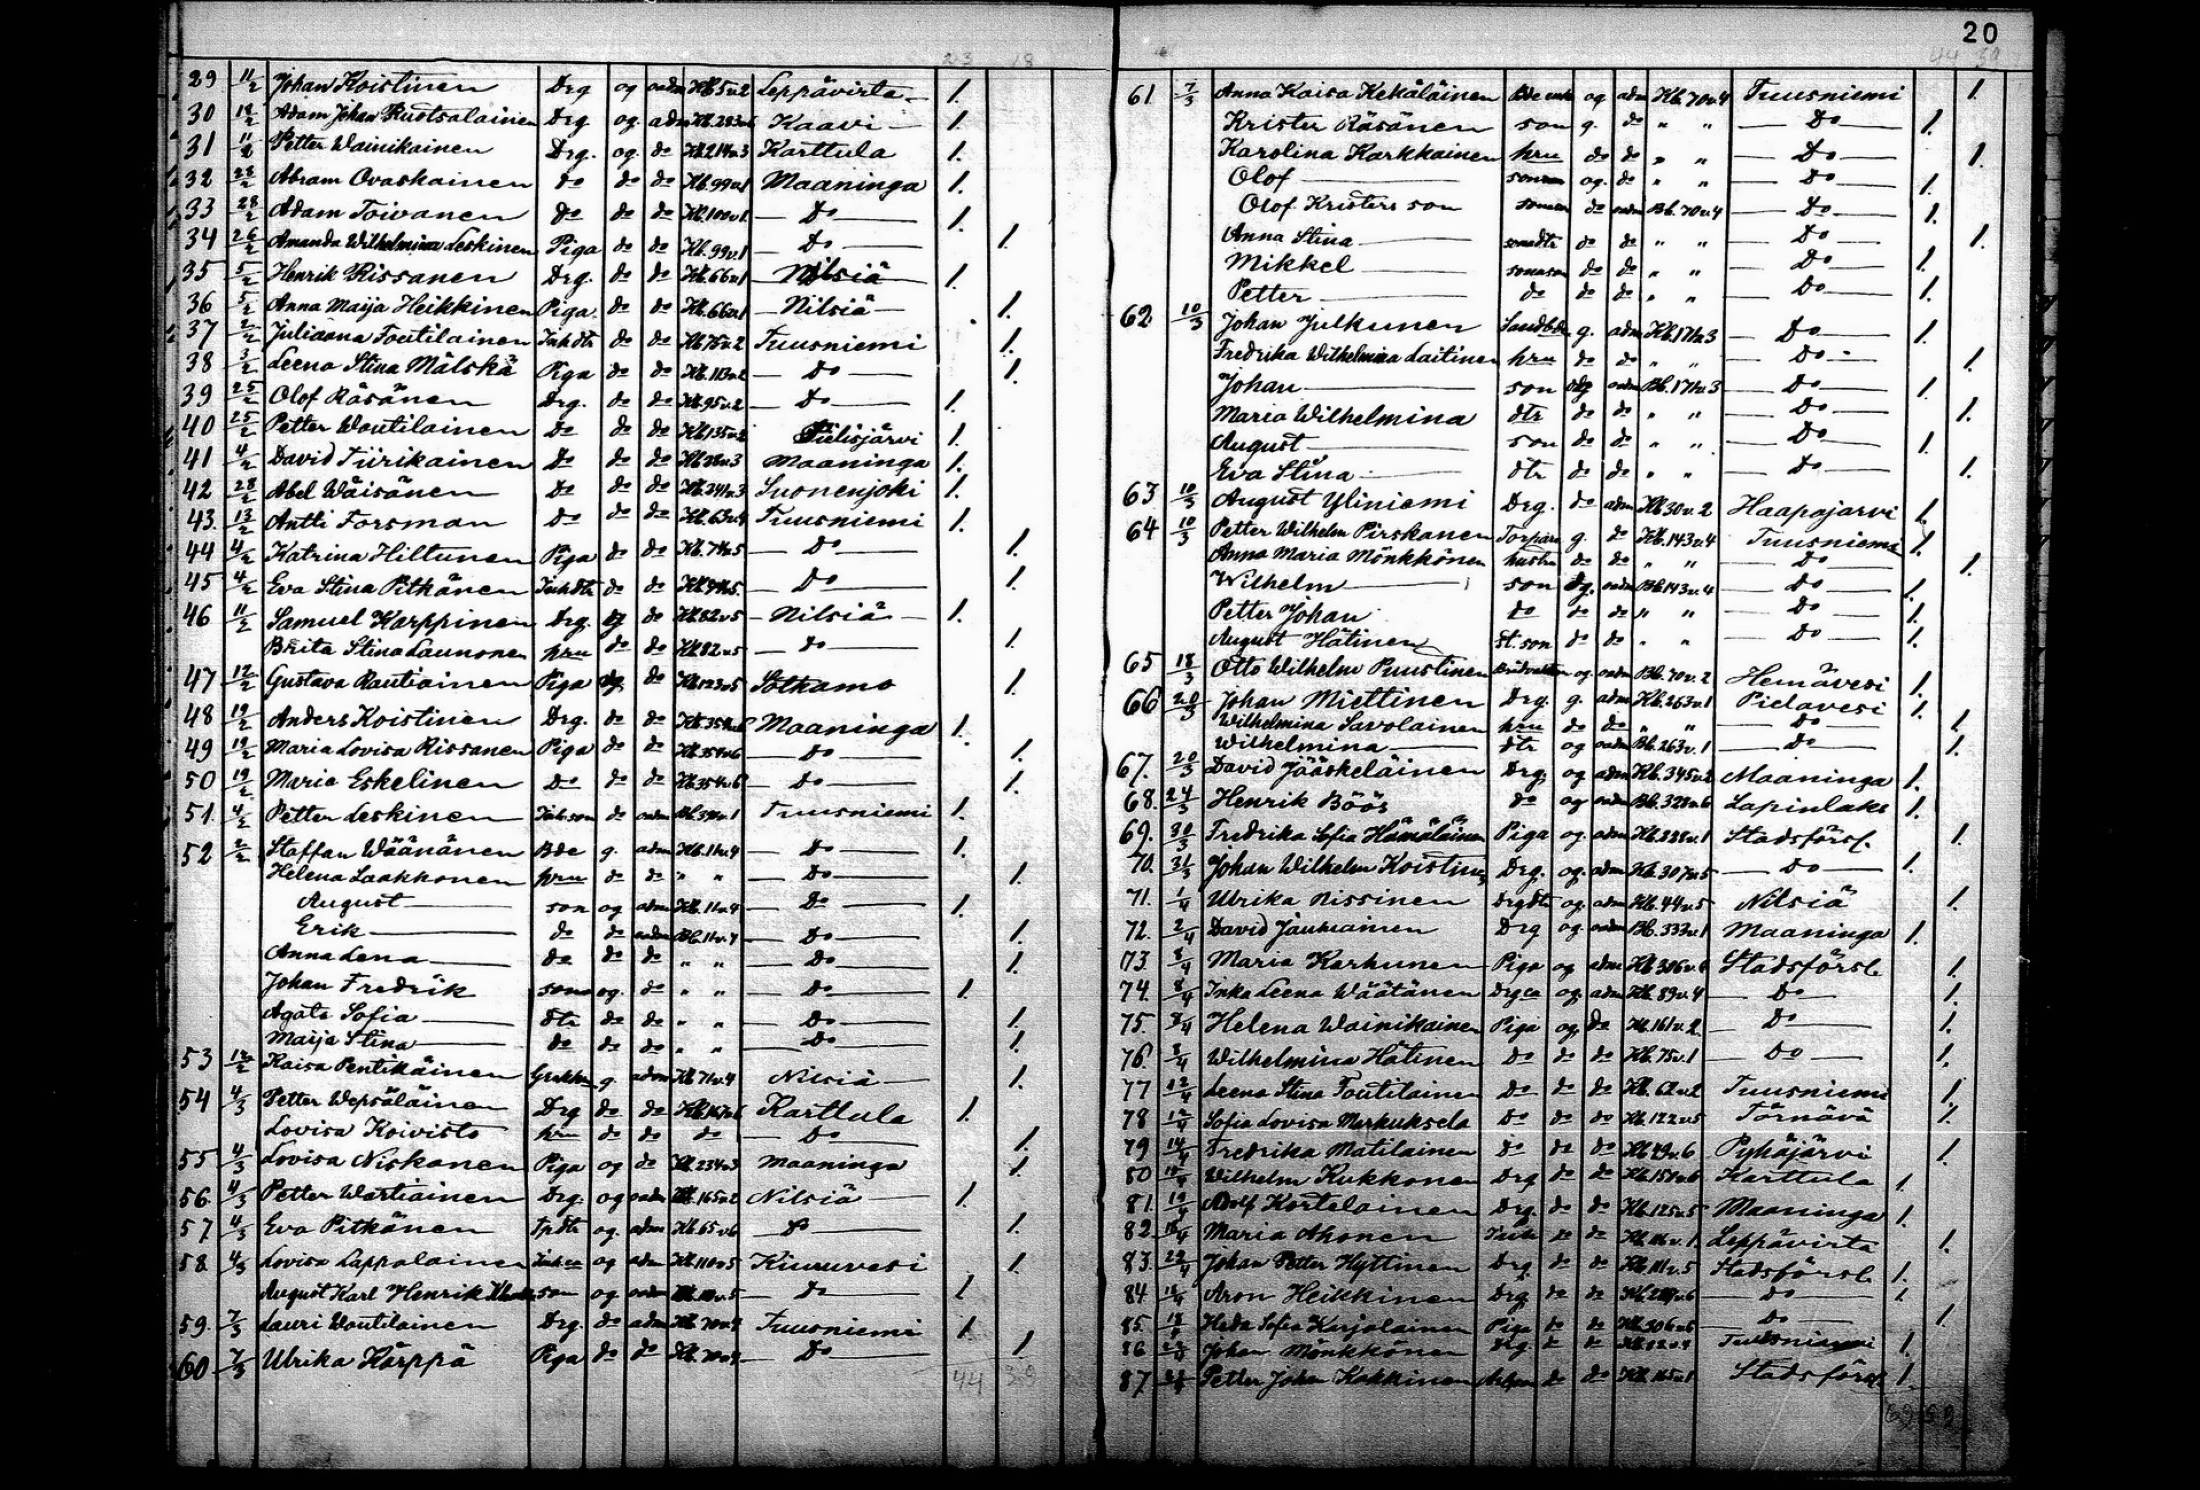 20
23 18
29 11/2 Johan Koistinen Drg og oadm Kb. 5 v. 2 Leppävirta 1.
30 18/2 Adam Johan Ruotsalainen Drg og. adm Kaavi 1.
31 Petter Wainikainen Drg. og. do Karttula 1.
32 28/2 Abram Ovaskainen do do do Kb. 99 v. 1 Maaninga 1.
33 28/2 Adam Toivanen do do do Kb. 100 v. 1. Do 1.
34 26/2 Amanda Wilhelmina Leskinen Piga do do Kb. 99 v. 1 Do 1.
35 5/2 Henrik Rissanen Drg. do do Kb. 66 v. 1 Nilsiä 1.
36 5/2 Anna Maija Heikkinen Piga do do Kb. 66 v. 1 Nilsiä 1.
37 2/2 Juliaana Toutilainen Inh dtr do do Kb. 75 v. 2 Tuusniemi 1.
38 3/2 Leena Stina Mälskä Piga do do Kb. 113 v. 2 Do 1.
39 25/2 Olof Räsänen Drg. do do Kb. 95 v. 2 Do 1.
40 25/2 Petter Woutilainen Do do do Kb. 135 v. 2 Pielisjärvi 1.
41 4/2 David Tiirikainen Do do do Maaninga 1.
42 28/2 Abel Wäisänen Do do do Kb. 241 v. 3 Suonenjoki 1.
43. 13/2 Antti Forsman Do do do Kb. 63 v. 4 Tuusniemi 1.
44 4/2 Katrina Hiltunen Piga do do Kb. 74 v. 5 Do 1.
45 4/2 Eva Stina Pitkänen Inh dtr do do Do 1.
46 11/2 Samuel Karppinen Drg. do Kb. 82 v. 5 Nilsiä 1.
Brita Stina Launonen hru do do Kb. 82 v. 5 Do 1.
47 12/2 Gustava Rautiainen Piga do Kb. 123 v. 5 Sotkamo 1.
48 19/2 Anders Koistinen Drg. do do Kb. 354 v. 6 Maaninga 1.
49 19/2 Maria Lovisa Rissanen Piga do do Kb. 354 v. 6 Do 1.
50 19/2 Maria Eskelinen Do do do Kb. 354 v. 6 Do 1.
51. 4/2 Petter Leskinen Inh. son do oadm Tuusniemi 1.
52 2/2 Staffan Wäänänen Bde g. adm Kb. 11 v. 4 Do 1.
Helena Laakkonen hru do do " " Do 1.
August son og adm Kb. 11 v. 4 Do 1.
Erik do do oadm Bb. 11 v. 4 Do 1.
Anna Lena do do do " " Do 1.
Johan Fredrik son og. do " " Do 1.
Agata Sofia dtr do do " " Do 1.
Maija Stina do do do " " Do 1.
53 12/2 Kaisa Pentikäinen g. adm Kb. 71 v. 4 Nilsiä 1.
54 4/3 Petter Wepsäläinen Drg do do Karttula 1.
Lovisa Koivisto hru do do do Do 1.
55 4/3 Lovisa Niskanen Piga og do Kb. 234 v. 3 Maaninga 1.
56 4/3 Petter Wartiainen Drg. og oadm Kb. 165 v. 2 Nilsiä 1.
57 4/3 Eva Pitkänen og. adm Kb. 65 v. 6 Do 1.
58. 4/3 Lovisa Lappalainen og adm Kb. 110 v. 5 Kiuruvesi 1.
August Karl Henrik son og oadm Do 1
59. 7/3 Lauri Woutilainen Drg. do adm Tuusniemi 1.
60 7/3 Ulrika Kärppä Piga do do Do 1.
44 39
44 39
61. 7/3 Anna Kaisa Kekäläinen og adm Kb. 70 v. 4 Tuusniemi 1.
Krister Räsänen son g. do " " Do 1.
Karolina Karkkainen hru do do " " Do 1.
Olof og. do " " Do 1.
Olof Kristers son do oadm Bb. 70 v. 4 Do 1.
Anna Stina do do " " Do 1.
Mikkel sonson do do " " Do 1.
Petter do do do " " Do 1.
62 10/3 Johan Julkunen g. adm Kb. 171 v. 3 Do 1.
Fredrika Wilhelmina Laitinen hru do do " " Do 1.
Johan son og oadm Bb. 171 v. 3 Do 1.
Maria Wilhelmina dtr do do " " Do 1.
August son do do " " Do 1.
Eva Stina dtr do do " " Do 1.
63 10/3 August Yliniemi Drg. do adm Kb. 30 v. 2 Haapajarvi 1.
64 10/3 Petter Wilhelm Pirskanen Torpare g. do Kb. 143 v. 4 Tuusniemi 1.
Anna Maria Mönkkönen hustru do do " " Do 1.
Wilhelm son og. oadm Bb. 143 v. 4 do 1.
Petter Johan do do do " " Do 1.
August Hätinen st. son do do " " Do 1.
65 18/3 Otto Wilhelm Puustinen og. oadm Bb. 70 v. 2 Heinävesi 1.
66 20/3 Johan Miettinen Drg. g. adm Kb. 263 v. 1 Pielavesi 1.
Wilhelmina Savolainen hru do do " " Do 1.
Wilhelmina dtr og oadm Bb. 263 v. 1 Do 1.
67. 20/3 David Jääskeläinen Drg. og adm Kb. 345 v. 2 Maaninga 1.
68. 24/3 Henrik Böös do og oadm Bb. 328 v. 6 Lapinlaks 1.
69. 30/3 Fredrika Sofia Hämäläinen Piga og. adm Kb. 338 v. 1 Stadsförsl. 1.
70. 31/3 Johan Wilhelm Koistinen Drg. og. adm Kb. 307 v. 5 Do 1.
71. 1/4 Ulrika Nissinen Drgdtr og. adm Kb. 44 v. 5 Nilsiä 1.
72. 2/4 David Jauhiainen Drg og. oadm Bb. 333 v. 1 Maaninga 1.
73. 8/4 Maria Karhunen Piga og adm Kb. 306 v. 6 Stadsförsl. 1.
74. 8/4 Inka Leena Wäätänen og. adm Kb. 89 v. 4 Do 1.
75. 8/4 Helena Wainikainen Piga og. do Kb. 161 v. 2 Do 1.
76. 8/4 Wilhelmina Hätinen Do do do Kb. 75 v. 1 Do 1.
77 12/4 Leena Stina Toutilainen Do do do Kb. 62 v. 2 Tuusniemi 1.
78 12/4 Sofia Lovisa Markuksela Do do do Kb. 122 v. 5 Törnävä 1.
79 14/4 Fredrika Matilainen Do do do Kb. 29 v. 6 Pyhäjärvi 1.
80 Wilhelm Kukkonen Drg do do Kb. 151 v. 6 Karttula 1.
81. Adolf Kortelainen Drg. do do Kb. 125 v. 5 Maaninga 1.
82. Maria Ahonen do do Leppävirta 1.
83. 22/4 Johan Petter Hyttinen Drg do do Kb. 111 v. 5 Stadsförsl. 1.
84 Aron Heikkinen Drg do do Do 1.
85. Heda Sofia Karjalainen Piga do do Kb. 306 v. 6 Do 1.
86 Johan Mönkkönen do do Tuusniemi 1.
87 Petter Johan Kokkinen do do Kb. 165 v. 1 Stadsförsl. 1.